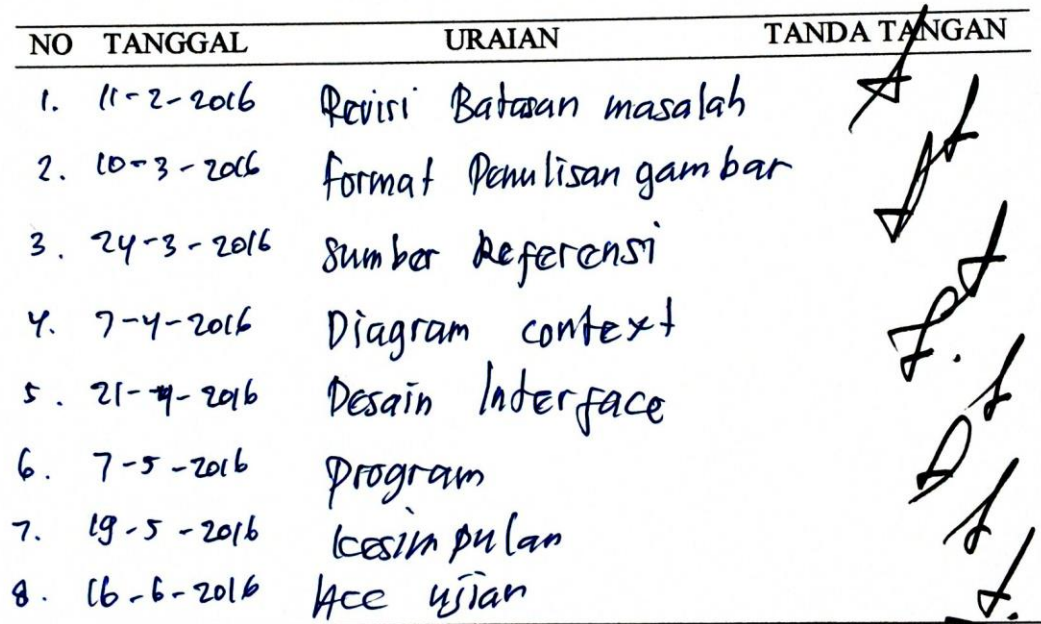 NO TANGGAL URAIAN TANDA TANGAN
1. 11-2-2016 Revisi Batasan masalah
2. 10-3-2016 Format Penulisan gambar
3. 24-3-2016 Sumber Referensi
4. 7-4-2016 Diagram context
5. 21-4-2016 Desain Interface
6. 7-5-2016 Program
7. 19-5-2016 Kesimpulan
8. 16-6-2016 Acc ujian